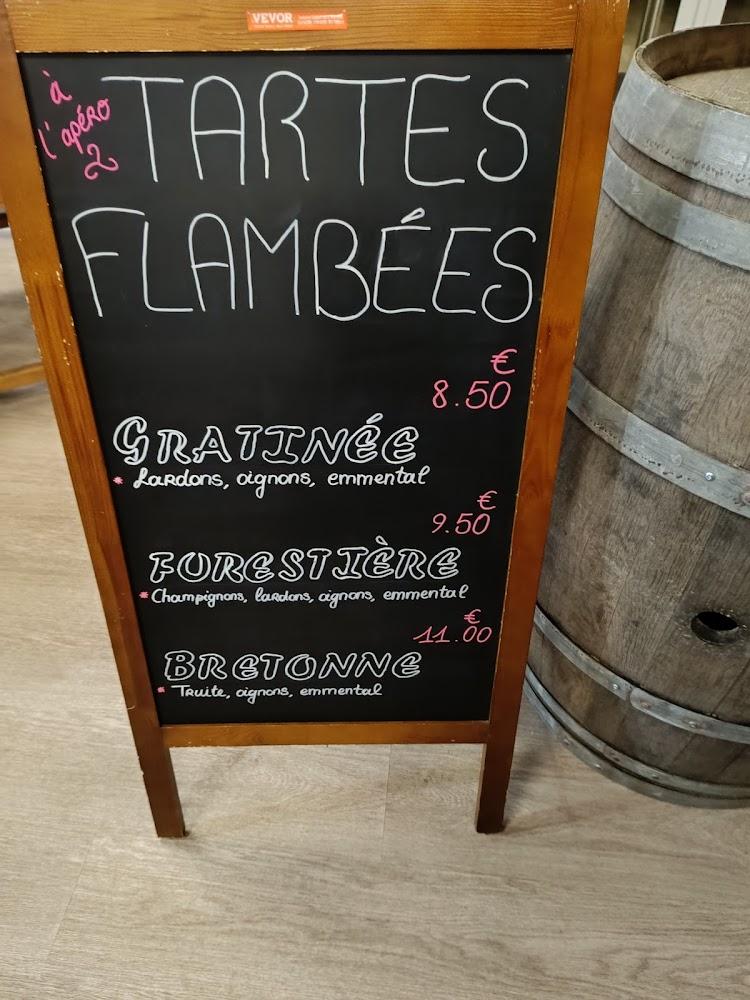 VEVOR
à
l'apéro
2
TARTES
FLAMBÉES
€
8.50
GRATINÉE
* Lardons, oignons, emmental
€
9.50
FORESTIÈRE
* Champignons, lardons, oignons, emmental
€
11.00
BRETONNE
* Truite, oignons, emmental